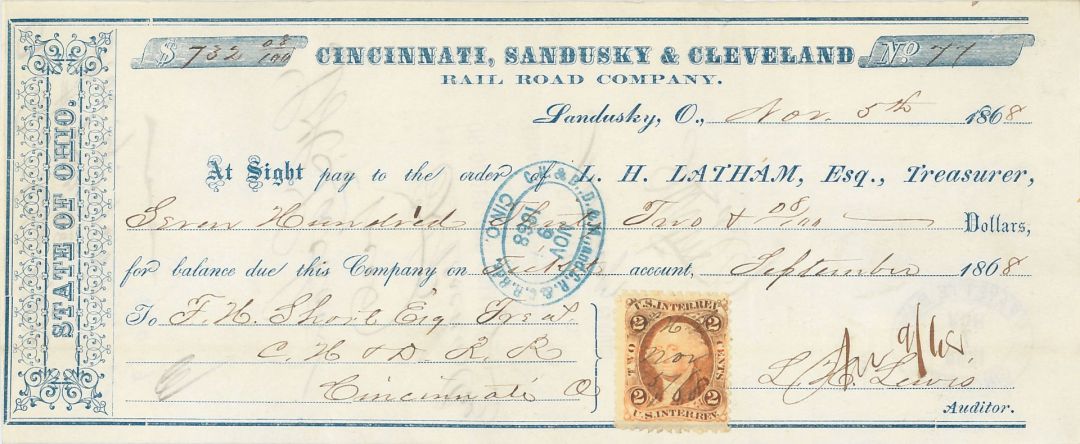 $ 732 08/100 CINCINNATI, SANDUSKY & CLEVELAND No. 77
RAIL ROAD COMPANY.
Sandusky, O., Nov. 5th 1868
At Sight pay to the order of L. H. LATHAM, Esq., Treasurer,
Seven Hundred Thirty Two & 08/100 Dollars,
for balance due this Company on Ticket account, September 1868
To F. H. Short Esq Treas.
C. H & D. R. R
Cincinnati O
STATE OF OHIO.
NOV
9
1868
CINO.
U.S. INTER. REV.
2 2
TWO CENTS
Nov
5 68
2 2
U.S. INTER. REV.
9/68
Lewis
Auditor.